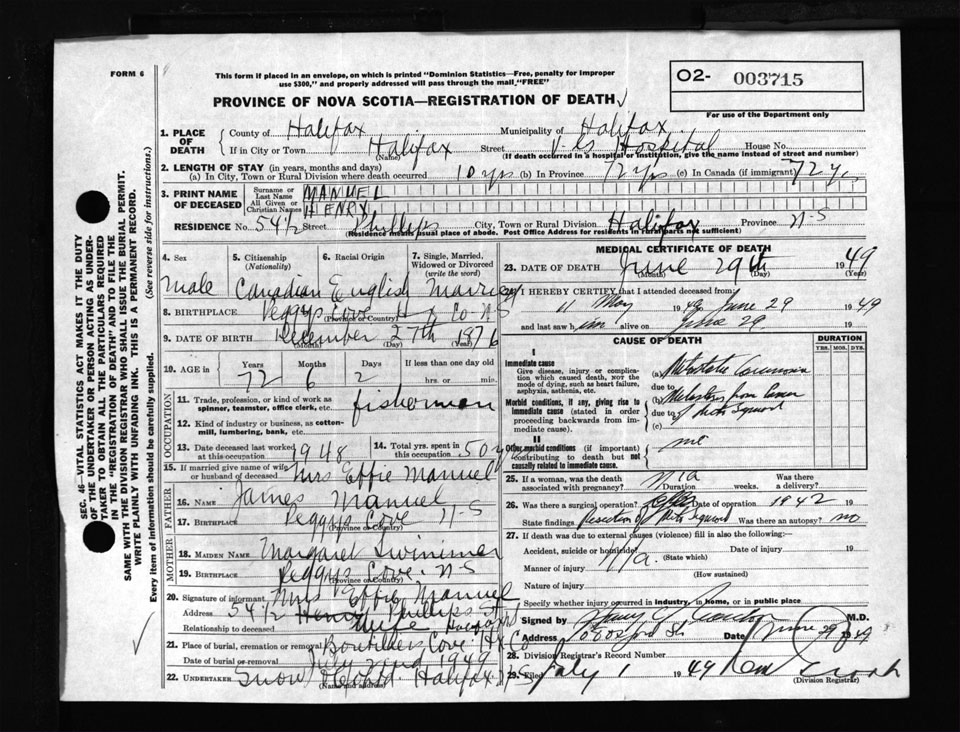 FORM 6
This form if placed in an envelope, on which is printed "Dominion Statistics—Free, penalty for improper
use $300," and properly addressed will pass through the mail "FREE"
O2- 003715
For use of the Department only
PROVINCE OF NOVA SCOTIA—REGISTRATION OF DEATH
1. PLACE OF DEATH { County of Halifax Municipality of Halifax
If in City or Town Halifax (Name) Street V.G. Hospital House No.
(If death occurred in a hospital or institution, give the name instead of street and number)
2. LENGTH OF STAY (in years, months and days)
(a) In City, Town or Rural Division where death occurred 10 yrs (b) In Province 72 yrs (c) In Canada (if immigrant) 72 y
3. PRINT NAME OF DECEASED { Surname or Last Name MANUEL
All Given or Christian Names HENRY
RESIDENCE No. 54½ Street Phillips City, Town or Rural Division Halifax Province N-S
(Residence means usual place of abode. Post Office Address for residents in rural parts not sufficient)
4. Sex
male
5. Citizenship (Nationality)
Canadian
6. Racial Origin
English
7. Single, Married, Widowed or Divorced (write the word)
Married
8. BIRTHPLACE Peggys Cove Hfx Co N-S
(Province or Country)
9. DATE OF BIRTH December 27th 1876
(Month) (Day) (Year)
10. AGE in { Years Months Days If less than one day old
72 6 2 hrs. or min.
OCCUPATION
11. Trade, profession, or kind of work as spinner, teamster, office clerk, etc. fisherman
12. Kind of industry or business, as cotton-mill, lumbering, bank, etc.
13. Date deceased last worked at this occupation 1948
14. Total yrs. spent in this occupation 50 y
15. If married give name of wife or husband of deceased Mrs Effie Manuel
FATHER
16. NAME James Manuel
17. BIRTHPLACE Peggys Cove N-S
(Province or Country)
MOTHER
18. MAIDEN NAME Margaret Swinimer
19. BIRTHPLACE Peggys Cove N-S
(Province or Country)
20. Signature of informant Mrs Effie Manuel
Address 54½ Henry Phillips St
Relationship to deceased Wife Halifax
21. Place of burial, cremation or removal Boutiliers Cove Hfx Co
Date of burial or removal July 2nd 1949
22. UNDERTAKER Snow Halifax N-S
(Name and address)
MEDICAL CERTIFICATE OF DEATH
23. DATE OF DEATH June 29th 1949
(Month) (Day) (Year)
24. I HEREBY CERTIFY that I attended deceased from:
11 May 1949 June 29 1949
and last saw him alive on June 29 19
CAUSE OF DEATH
DURATION
YRS. MOS. DYS.
I
Immediate cause
Give disease, injury or complication which caused death, not the mode of dying, such as heart failure, asphyxia, asthenia, etc.
(a) Metastatic
due to
Morbid conditions, if any, giving rise to immediate cause (stated in order proceeding backwards from immediate cause).
(b) Metastases from
due to
(c)
II
Other morbid conditions (if important) contributing to death but not causally related to immediate cause.
25. If a woman, was the death associated with pregnancy? n/a Duration weeks. Was there a delivery?
26. Was there a surgical operation? Date of operation 1942 19
State findings Resection of Was there an autopsy? no
27. If death was due to external causes (violence) fill in also the following:
Accident, suicide or homicide? n/a. (State which) Date of injury 19
Manner of injury
(How sustained)
Nature of injury
Specify whether injury occurred in industry, in home, or in public place
Signed by M.D.
Address Date June 29 1949
28. Division Registrar's Record Number
29. Filed July 1 1949
(Division Registrar)
SEC. 46—VITAL STATISTICS ACT MAKES IT THE DUTY
OF THE UNDERTAKER OR PERSON ACTING AS UNDER-
TAKER TO OBTAIN ALL THE PARTICULARS REQUIRED
IN THE "REGISTRATION OF DEATH" AND TO FILE THE
SAME WITH THE DIVISION REGISTRAR WHO SHALL ISSUE THE BURIAL PERMIT.
WRITE PLAINLY WITH UNFADING INK. THIS IS A PERMANENT RECORD.
Every item of information should be carefully supplied. (See reverse side for instructions.)